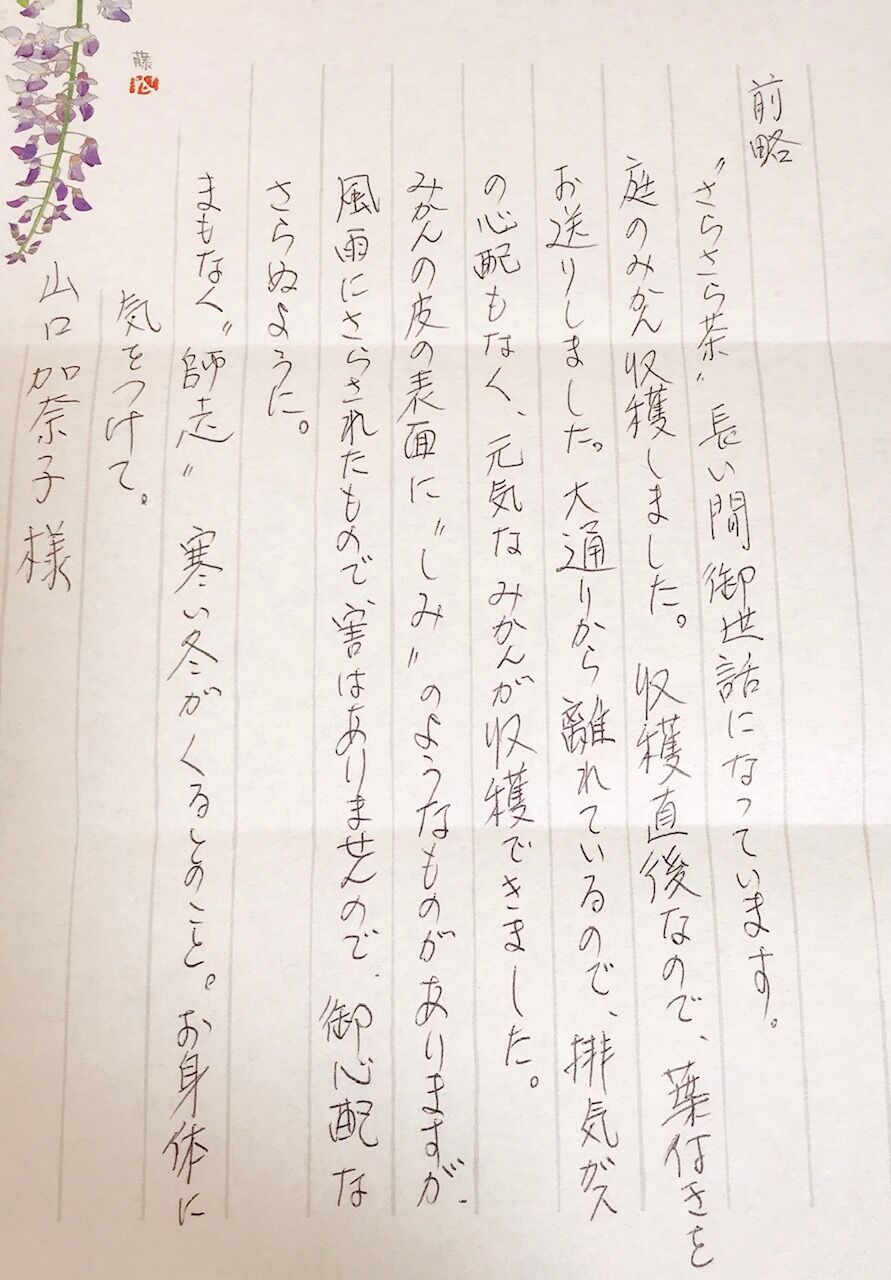 前略
〝さらさら茶〟長い間御世話になっています。
庭のみかん収穫しました。収穫直後なので、葉付きを
お送りしました。大通りから離れているので、排気ガス
の心配もなく、元気なみかんが収穫できました。
みかんの皮の表面に〝しみ〟のようなものがありますが、
風雨にさらされたもので、害はありませんので、御心配な
さらぬように。
まもなく〝師志〟寒い冬がくるとのこと。お身体に
気をつけて。
山口加奈子様
藤